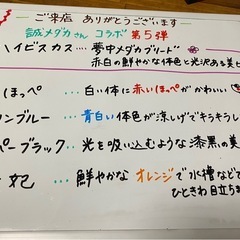 ご来店 ありがとうございます
誠メダカさん コラボ 第5弾
ハイビスカス… 夢中メダカブリード
赤白の鮮やかな体色と光沢ある美ヒ
ほっぺ … 白い体に赤いほっぺがかわいい
ンブルー … 青白い体色が涼しげでキラキラし
ペーブラック… 光を吸い込むような漆黒の美
妃 … 鮮やかなオレンジで水槽などで
ひときわ目立ちま